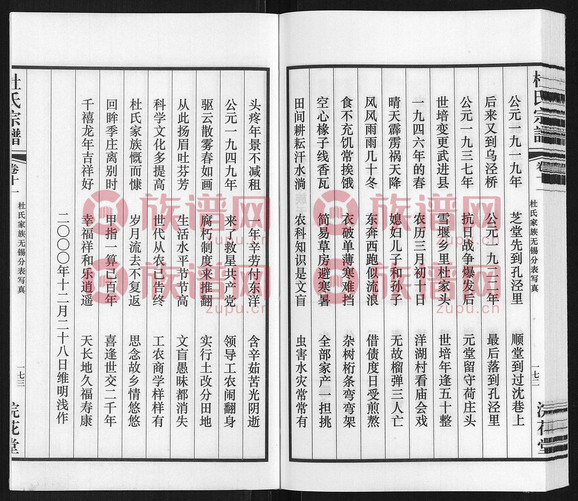 杜氏宗譜
卷十一
杜氏家族无锡分表写真
一七三
浣花堂
公元一九一九年 芝堂先到孔泾里 顺堂到过沈巷上
后来又到乌泾桥 公元一九二三年 最后落到孔泾里
公元一九三七年 抗日战争爆发后 元堂留守荷庄头
世培变更武进县 雪堰乡里杜家头 世培年逢五十整
一九四六年的春 农历三月初十日 洋湖村看庙会戏
晴天霹雳祸天降 媳妇儿子和孙子 无故榴弹三人亡
风风雨雨几十冬 东奔西跑似流浪 借债度日受煎熬
食不充饥常挨饿 衣破单薄寒难挡 杂树桁条弯弯架
空心椽子线香瓦 简易草房避寒暑 全部家产一担挑
田间耕耘汗水淌 农科知识是文盲 虫害水灾常常有
头疼年景不减租 一年辛劳付东洋 含辛茹苦光阴逝
公元一九四九年 来了救星共产党 领导工农闹翻身
驱云散雾春如画 腐朽制度来推翻 实行土改分田地
从此扬眉吐芬芳 生活水平节节高 文盲愚昧都消失
科学文化多提高 世代从农已告终 工农商学样样有
杜氏家族慨而慷 岁月流去不复返 思念故乡情悠悠
回眸季庄离别时 甲指一算已百年 喜逢世交二千年
千禧龙年吉祥好 幸福祥和乐逍遥 天长地久福寿康
二〇〇〇年十二月二十八日维明浅作
杜氏宗譜
卷十一
杜氏家族无锡分表写真
一七三
浣花堂
族谱网
zupu.cn